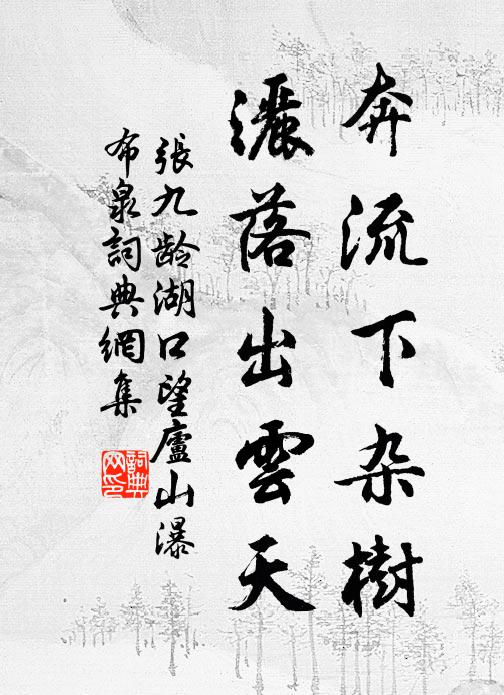 奔流下杂樹
灑落出雲天
張九龄湖口望廬山瀑
布泉詞典網集
詞典
网印